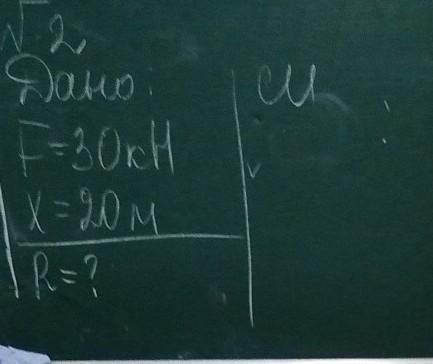 №2
Дано: СИ
F=30кН
x=20м
R=?